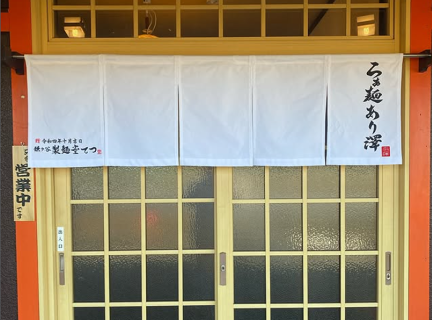 らぁ麺あり澤
令和四年十月吉日
製麺堂てつ
営業中
です
出入口